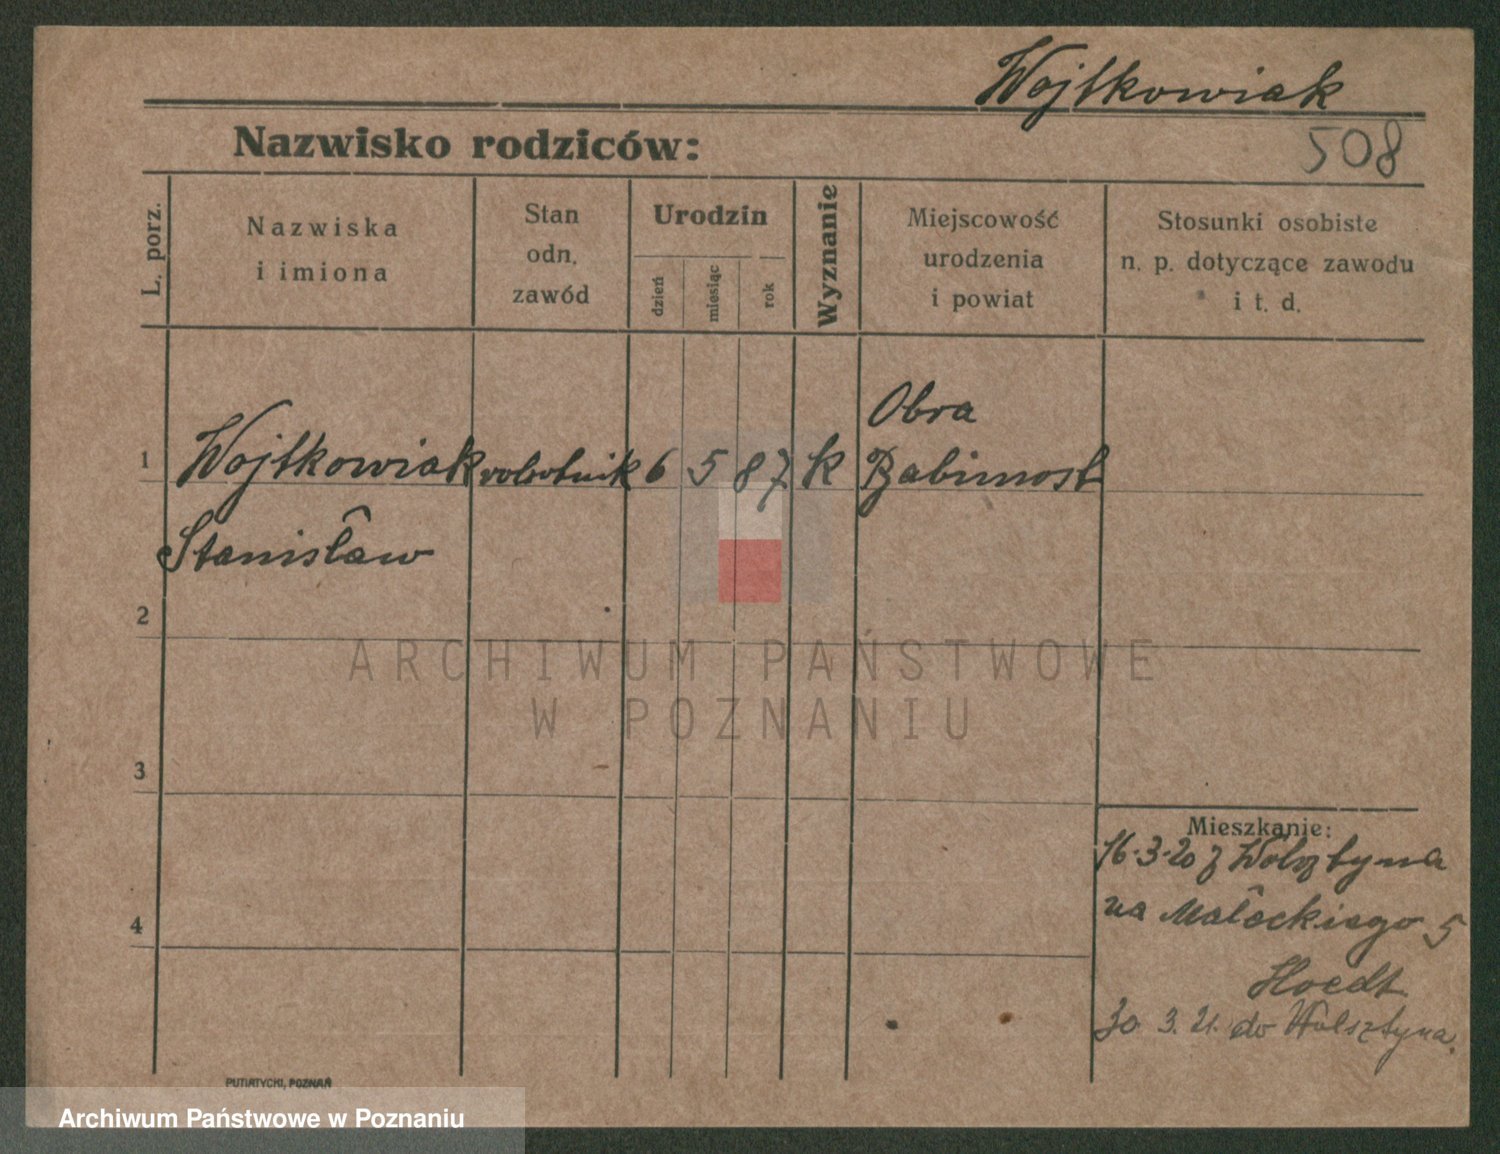 Wojtkowiak
Nazwisko rodziców:
508
L. porz.
Nazwiska
i imiona
Stan
odn.
zawód
Urodzin
dzień
miesiąc
rok
Wyznanie
Miejscowość
urodzenia
i powiat
Stosunki osobiste
n. p. dotyczące zawodu
i t. d.
Obra
1 Wojtkowiak robotnik 6 5 87 k Babimost
Stanisław
2
ARCHIWUM PAŃSTWOWE
W POZNANIU
3
Mieszkanie:
16.3.20 z Wolsztyna
na Małeckiego 5
4
Hoedt
30 3. 21. do Wolsztyna.
PUTIATYCKI, POZNAŃ
Archiwum Państwowe w Poznaniu